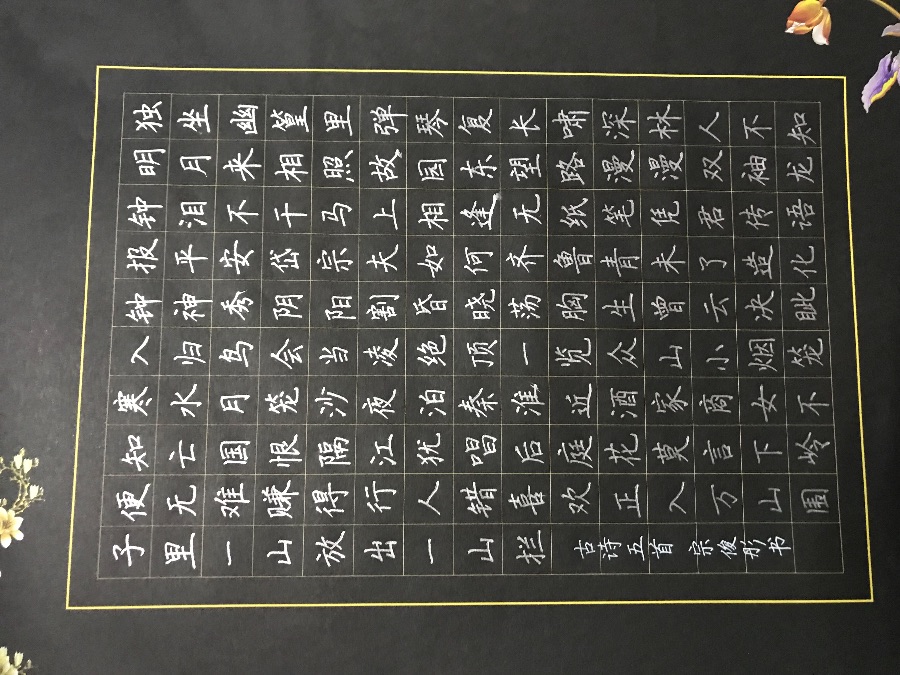 独坐幽篁里弹琴复长啸深林人不知
明月来相照故园东望路漫漫双袖龙
钟泪不干马上相逢无纸笔凭君传语
报平安岱宗夫如何齐鲁青未了造化
钟神秀阴阳割昏晓荡胸生曾云决眦
入归鸟会当凌绝顶一览众山小烟笼
寒水月笼沙夜泊秦淮近酒家商女不
知亡国恨隔江犹唱后庭花莫言下岭
便无难赚得行人错喜欢正入万山围
子里一山放出一山拦 古诗五首 宗俊彤书